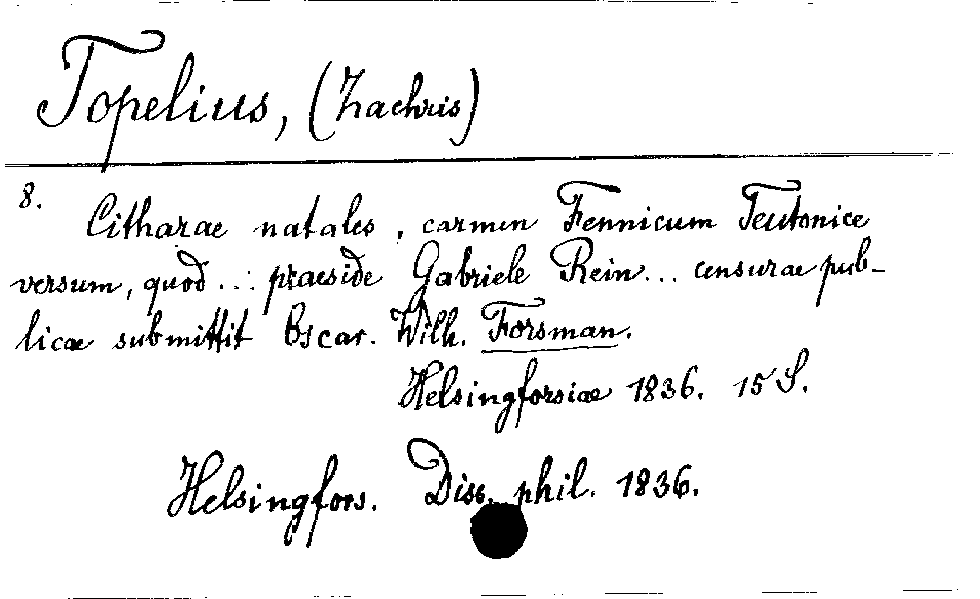 Topelius, (Zachris)
8.
Citharae natales, carmen Fennicum Teutonice
versum, quod ... praeside Gabriele Rein ... censurae pub-
licae submittit Oscar. Wilh. Forsman.
Helsingforsiae 1836. 15 S.
Helsingfors. Diss. phil. 1836.